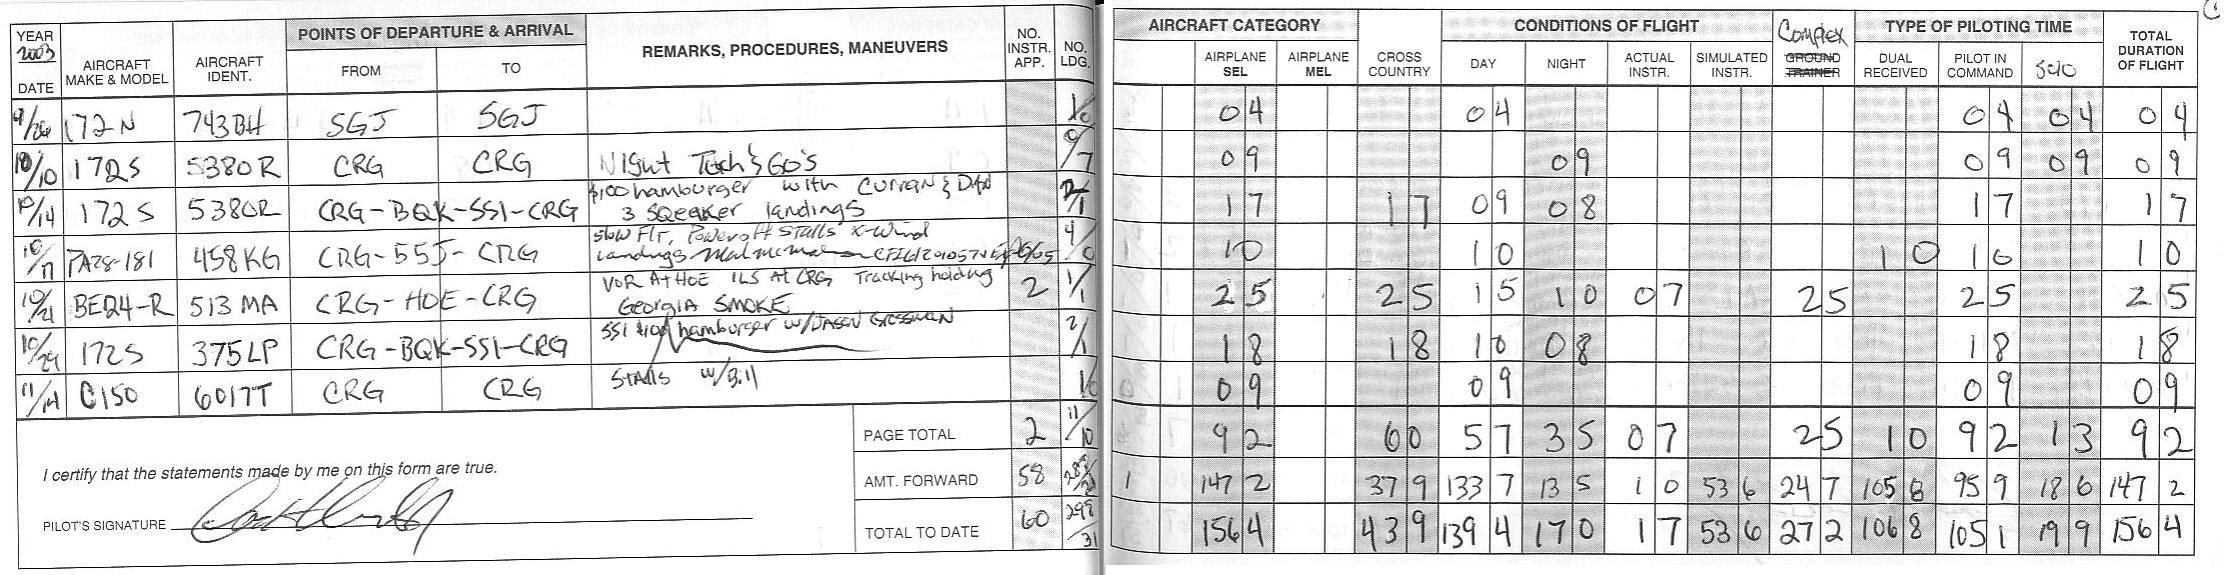 YEAR 2003 DATE AIRCRAFT MAKE & MODEL AIRCRAFT IDENT. POINTS OF DEPARTURE & ARRIVAL FROM TO REMARKS, PROCEDURES, MANEUVERS NO. INSTR. APP. NO. LDG. AIRCRAFT CATEGORY AIRPLANE SEL AIRPLANE MEL CROSS COUNTRY CONDITIONS OF FLIGHT DAY NIGHT ACTUAL INSTR. SIMULATED INSTR. Complex GROUND TRAINER TYPE OF PILOTING TIME DUAL RECEIVED PILOT IN COMMAND Solo TOTAL DURATION OF FLIGHT
9/26 172N 743BH SGJ SGJ 1/0 0 4 0 4 0 4 0 4 0 4
10/10 172S 5380R CRG CRG Night Touch & Go's 0/7 0 9 0 9 0 9 0 9 0 9
10/14 172S 5380R CRG-BQK-SSI-CRG $100 hamburger with Curran & Dan 2/1 1 7 1 7 0 9 0 8 1 7 1 7
3 SQEEAKER landings
10/17 PA28-181 458KG CRG-55J-CRG Slow Flt, Power off Stalls X-Wind 4/0 1 0 1 0 1 0 1 0 1 0
landings
10/21 BE24-R 513MA CRG-HOE-CRG VOR At HOE ILS At CRG Tracking holding 2 1/1 2 5 2 5 1 5 1 0 0 7 2 5 2 5 2 5
Georgia SMOKE
10/29 172S 375LP CRG-BQK-SSI-CRG SSI $100 hamburger w/ Jason Grossman 2/1 1 8 1 8 1 0 0 8 1 8 1 8
11/14 C150 6017T CRG CRG Stalls w/ Bill 1/0 0 9 0 9 0 9 0 9
PAGE TOTAL 2 11/10 9 2 6 0 5 7 3 5 0 7 2 5 1 0 9 2 1 3 9 2
I certify that the statements made by me on this form are true.
AMT. FORWARD 58 147 2 37 9 133 7 13 5 1 0 53 6 24 7 105 8 95 9 18 6 147 2
PILOT'S SIGNATURE
TOTAL TO DATE 60 298/31 156 4 43 9 139 4 17 0 1 7 53 6 27 2 106 8 105 1 19 9 156 4